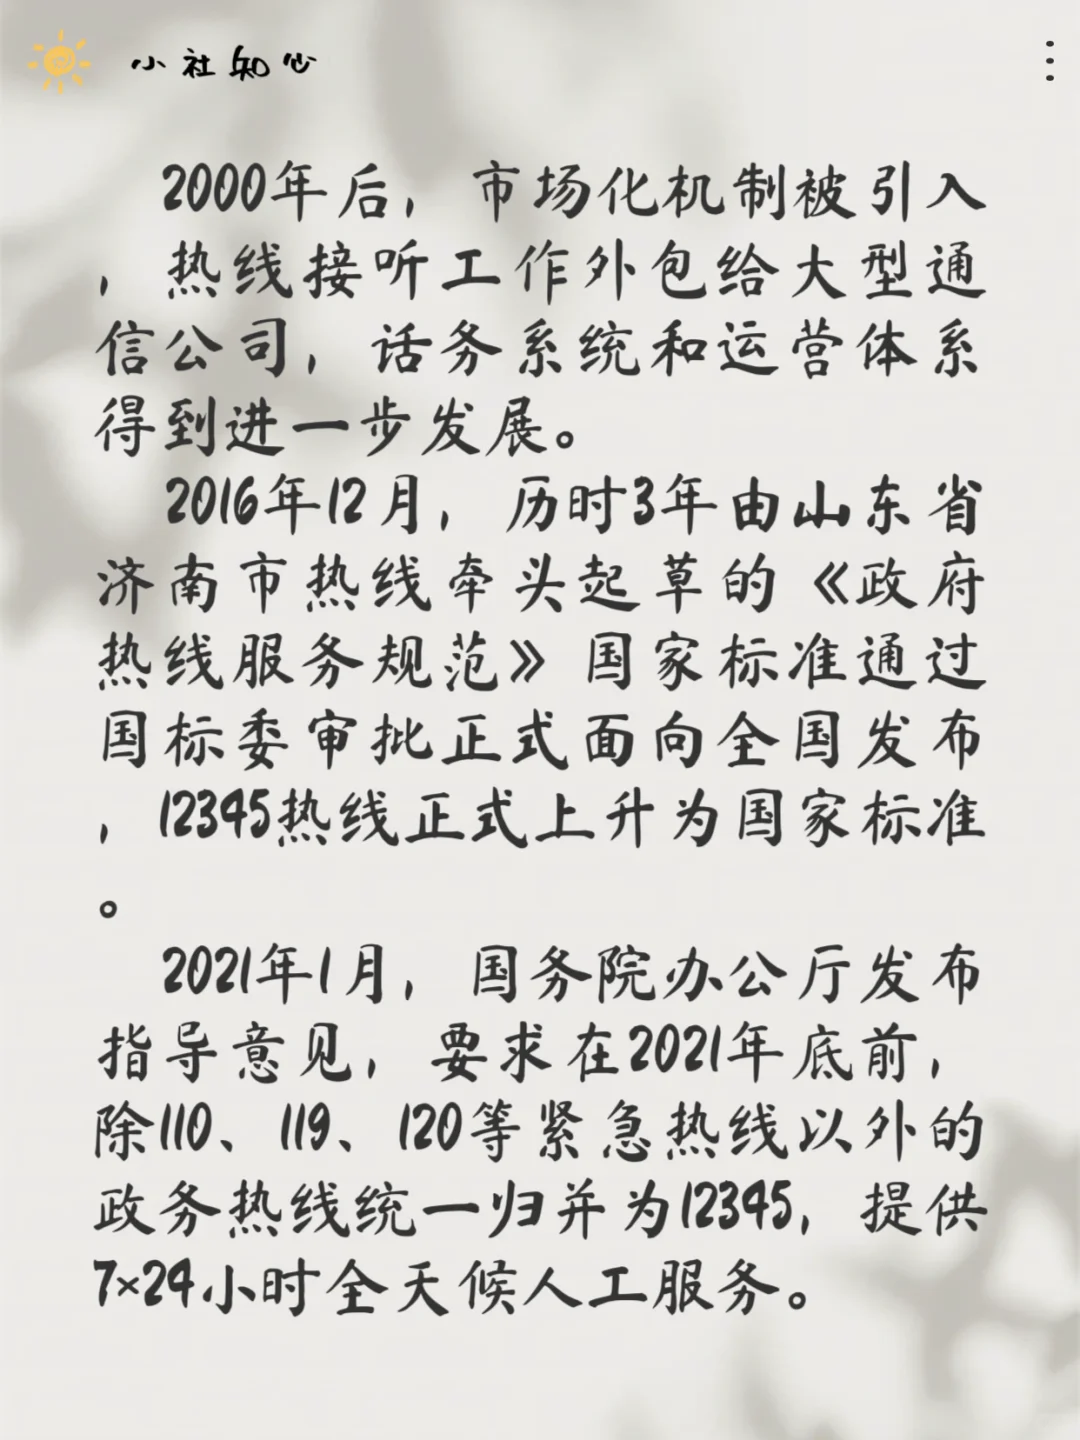 小社知心
2000年后，市场化机制被引入
，热线接听工作外包给大型通
信公司，话务系统和运营体系
得到进一步发展。
2016年12月，历时3年由山东省
济南市热线牵头起草的《政府
热线服务规范》国家标准通过
国标委审批正式面向全国发布
，12345热线正式上升为国家标准
。
2021年1月，国务院办公厅发布
指导意见，要求在2021年底前，
除110、119、120等紧急热线以外的
政务热线统一归并为12345，提供
7×24小时全天候人工服务。